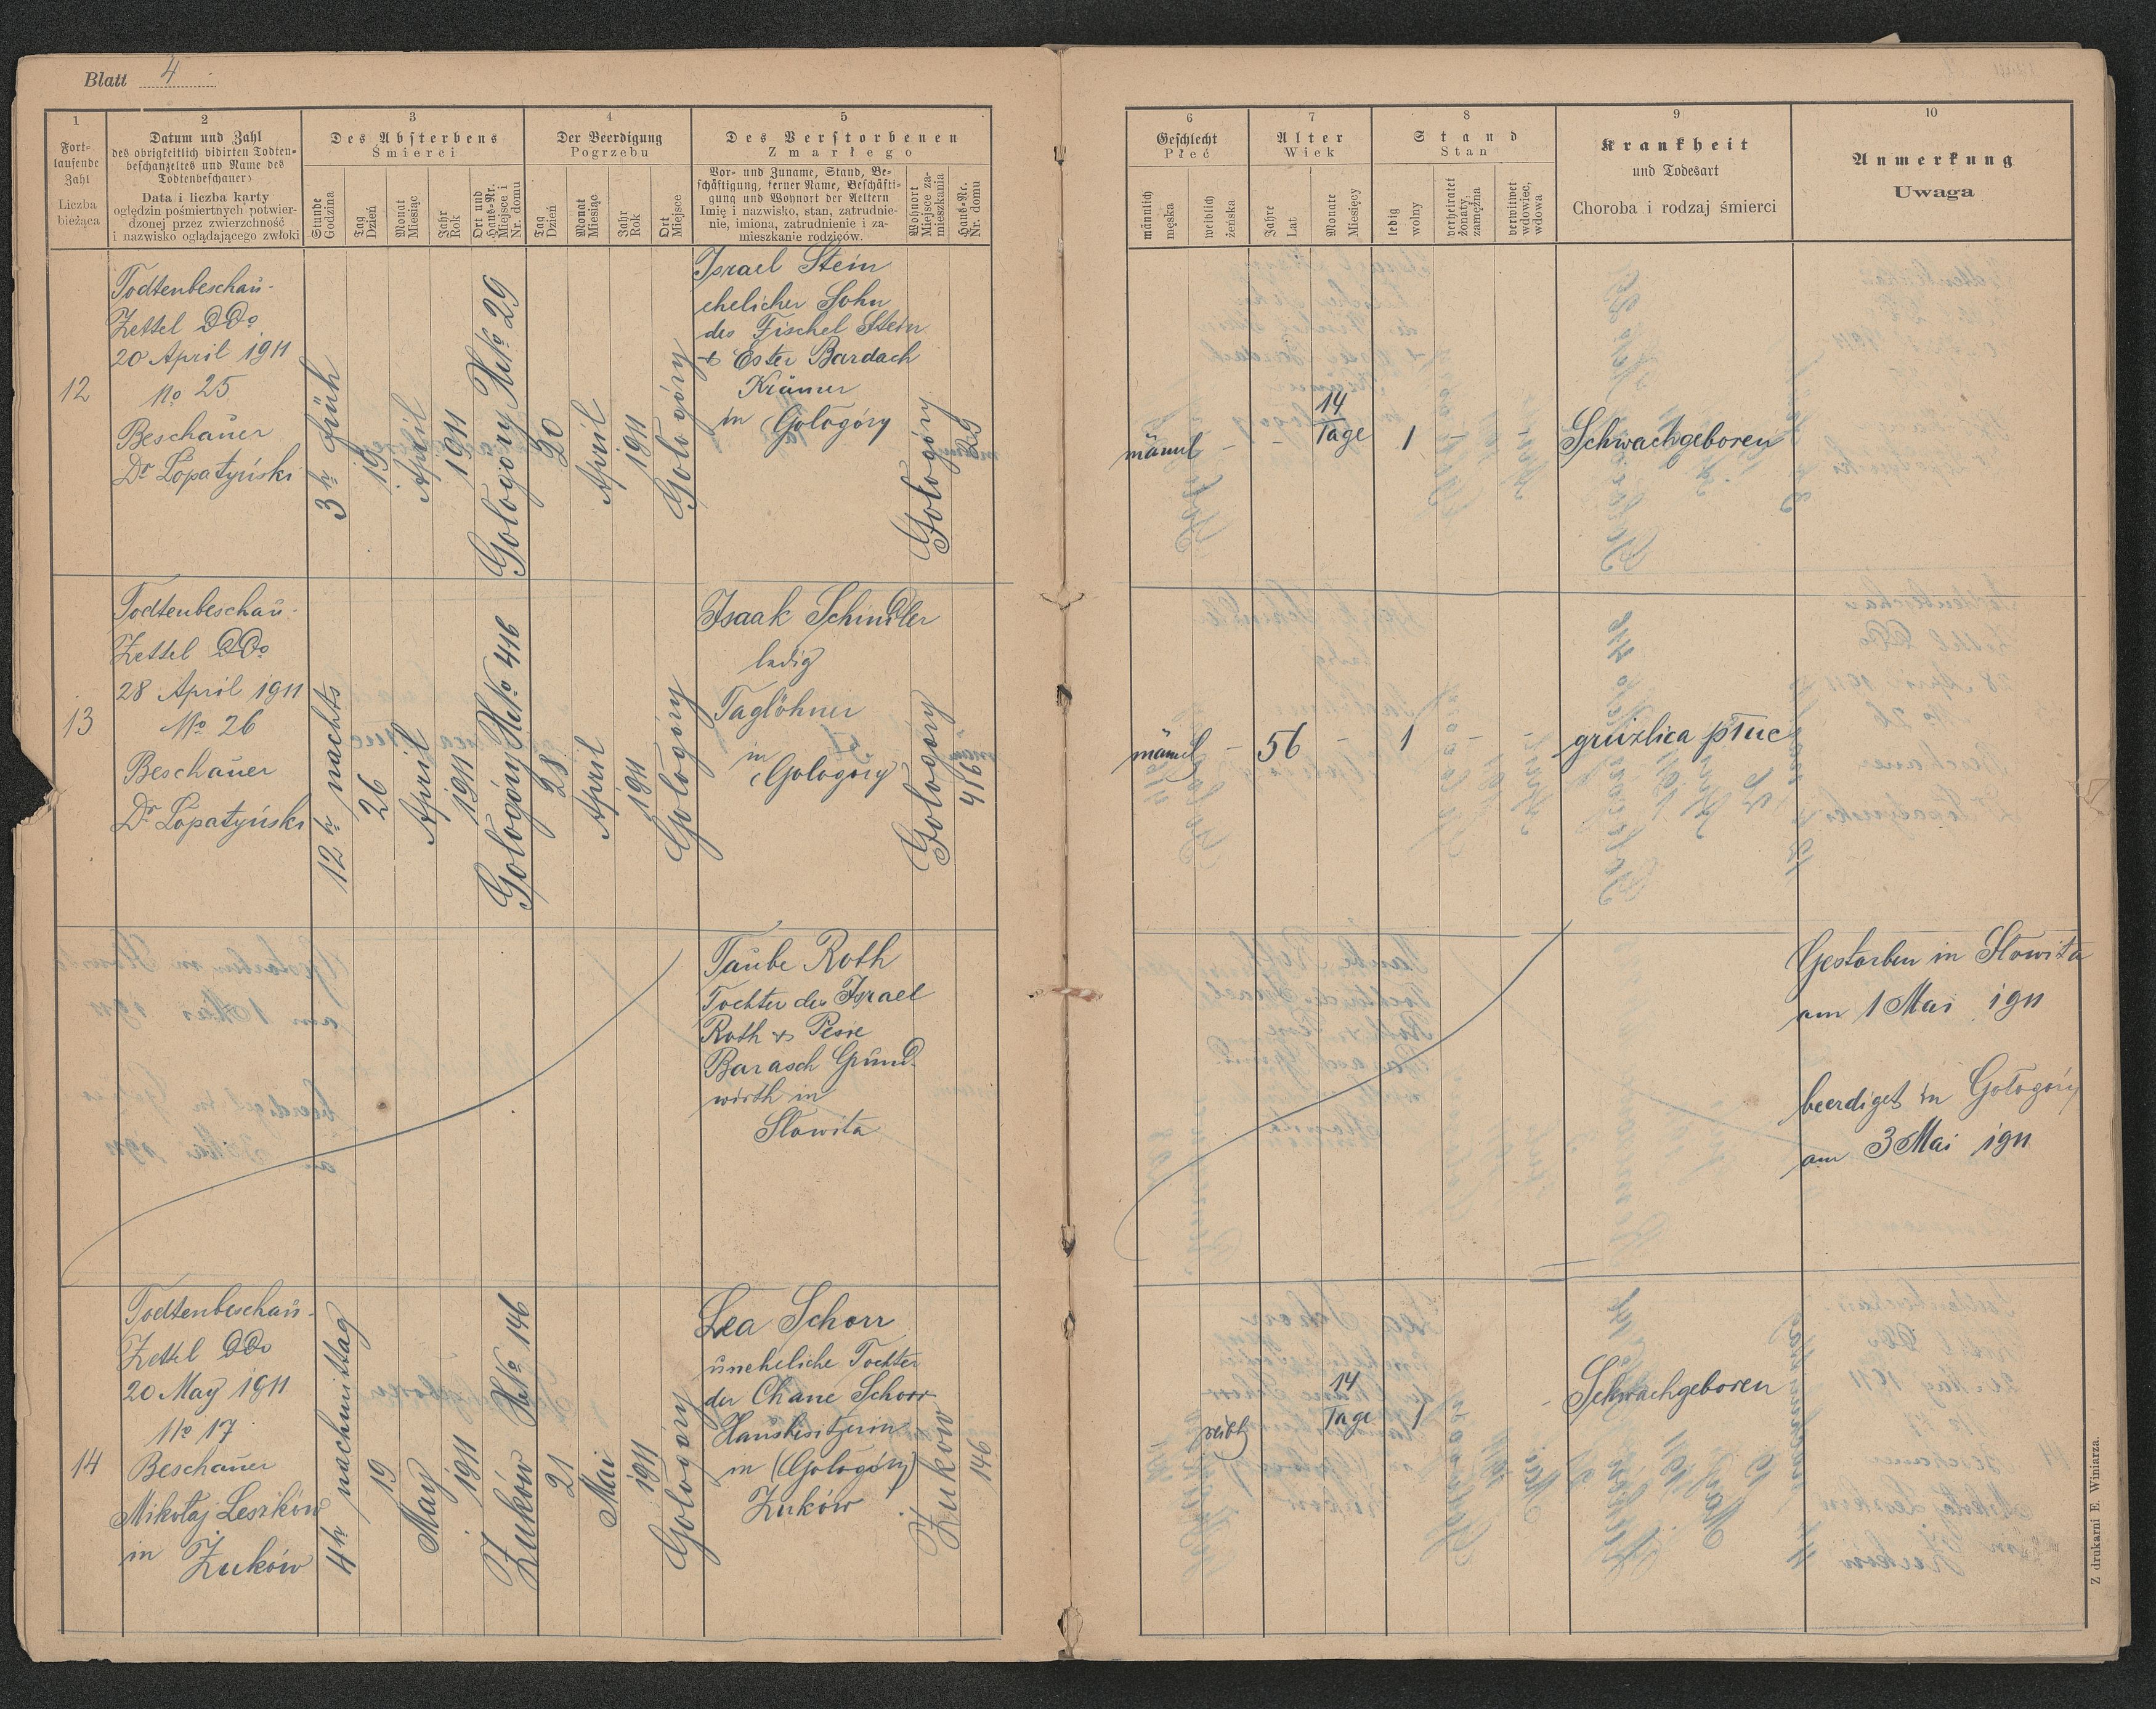 Blatt 4
1
Fort-
laufende
Zahl
Liczba
bieżąca
2
Datum und Zahl
des obrigkeitlich vidirten Todten-
beschauzettels und Name des
Todtenbeschauers
Data i liczba karty
oględzin pośmiertnych potwier-
dzonej przez zwierzchność
i nazwisko oglądającego zwłoki
3
Des Absterbens
Śmierci
Stunde
Godzina
Tag
Dzień
Monat
Miesiąc
Jahr
Rok
Ort und
Haus-Nr.
Miejsce i
Nr. domu
4
Der Beerdigung
Pogrzebu
Tag
Dzień
Monat
Miesiąc
Jahr
Rok
Ort
Miejsce
5
Des Verstorbenen
Zmarłego
Vor- und Zuname, Stand, Be-
schäftigung, ferner Name, Beschäfti-
gung und Wohnort der Aeltern
Imię i nazwisko, stan, zatrudnie-
nie, imiona, zatrudnienie i za-
mieszkanie rodziców.
Wohnort
Miejsce za-
mieszkania
Haus-Nr.
Nr. domu
6
Geschlecht
Płeć
männlich
męska
weiblich
żeńska
7
Alter
Wiek
Jahre
Lat
Monate
Miesięcy
8
Stand
Stan
ledig
wolny
verheiratet
żonaty,
zamężna
verwitwet
wdowiec,
wdowa
9
Krankheit
und Todesart
Choroba i rodzaj śmierci
10
Anmerkung
Uwaga
12
Todtenbeschau-
Zettel DDo
20 April 1911
No 25
Beschauer
Dr Łopatyński
3 hr früh
19
April
1911
Gołogóry HNo 29
20
April
1911
Gołogóry
Israel Stein
ehelicher Sohn
des Fischel Stein
& Ester Bardach
Krämer
in Gołogóry
Gołogóry
29
männl
-
-
14
Tage
1
Schwachgeboren
13
Todtenbeschau-
Zettel DDo
28 April 1911
No 26
Beschauer
Dr Łopatyński
12 hr nachts
26
April
1911
Gołogóry HNo 416
28
April
1911
Gołogóry
Isaak Schindler
ledig
Taglöhner
in
Gołogóry
Gołogóry
416
männl
-
56
-
1
-
gruźlica płuc
Taube Roth
Tochter des Israel
Roth & Pesie
Barasch Grund-
wirth in
Słowita
Gestorben in Słowita
am 1 Mai 1911
beerdigt in Gołogóry
am 3 Mai 1911
14
Todtenbeschau-
Zettel DDo
20 May 1911
No 17
Beschauer
Mikołaj Leszków
in Żuków
4 hr nachmittag
19
May
1911
Żuków HNo 146
21
Mai
1911
Gołogóry
Lea Schorr
uneheliche Tochter
der Chane Schorr
Hausbesitzerin
in (Gołogóry)
Żuków
Żuków
146
weibl
14
Tage
1
Schwachgeboren
Z drukarni E. Winiarza.